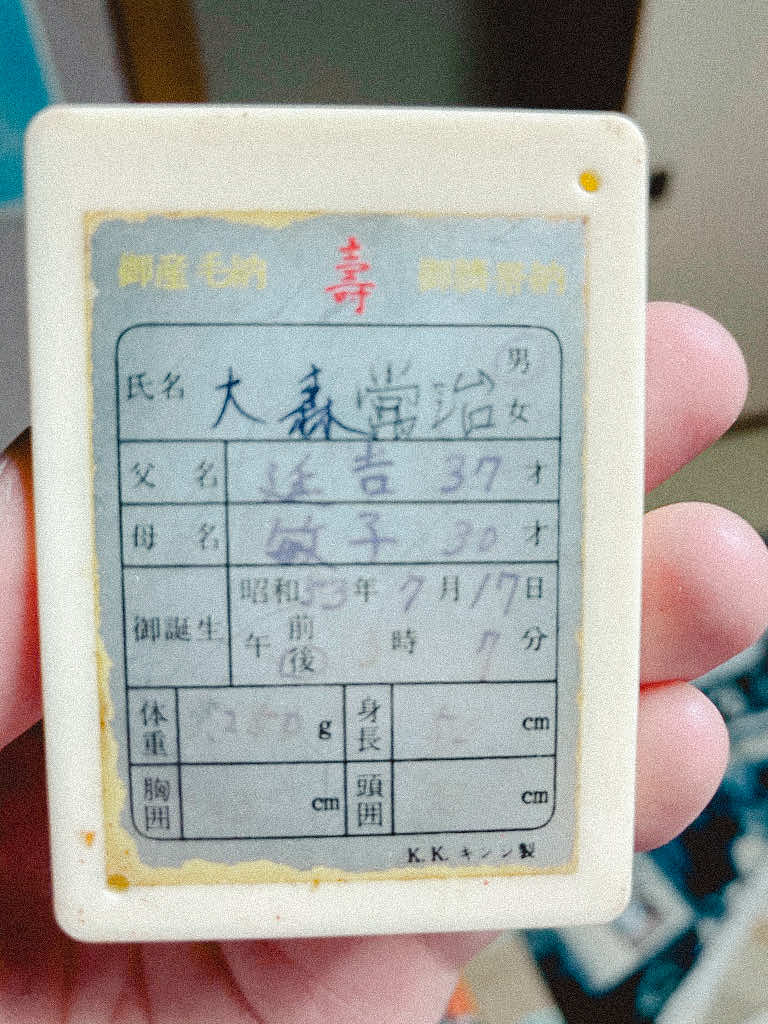 御産毛納 壽 御臍帯納
氏名 大森常治 男 女
父名 廷吉 37才
母名 敏子 30才
御誕生 昭和53年7月17日
午前後 時7分
体重 g 身長 cm
胸囲 cm 頭囲 cm
K.K.キンシン製